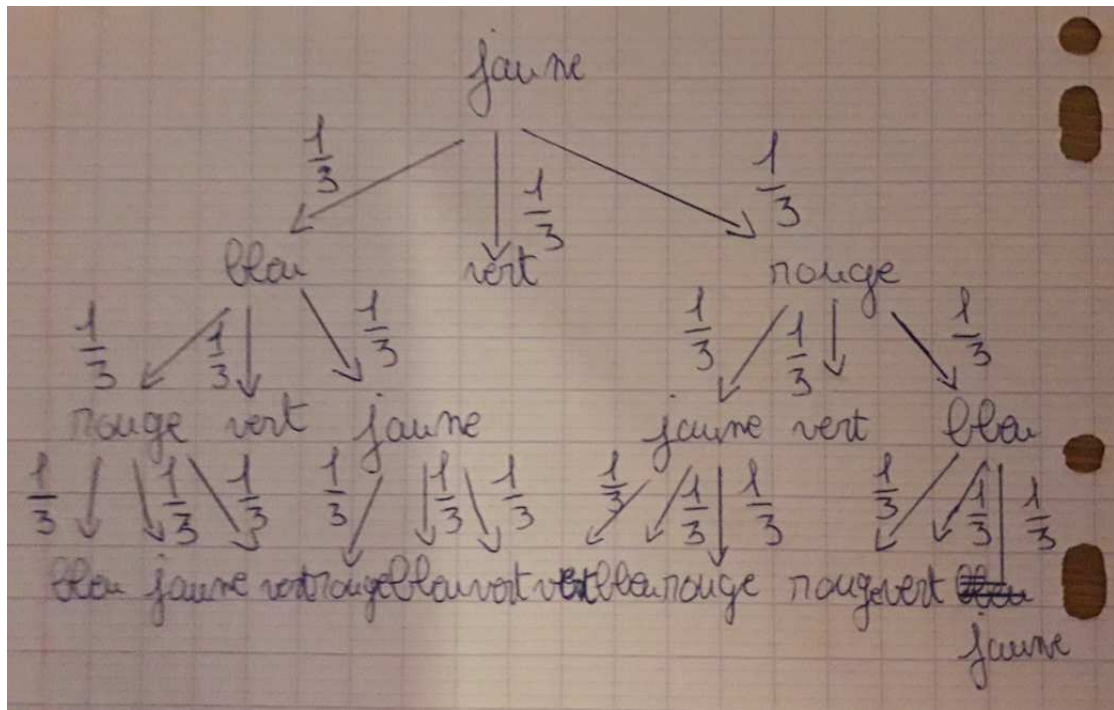 jaune
1/3 1/3 1/3
bleu vert rouge
1/3 1/3 1/3 1/3 1/3 1/3
rouge vert jaune jaune vert bleu
1/3 1/3 1/3 1/3 1/3 1/3 1/3 1/3 1/3 1/3 1/3 1/3
bleu jaune vert rouge bleu vert vert bleu rouge rouge vert bleu
jaune